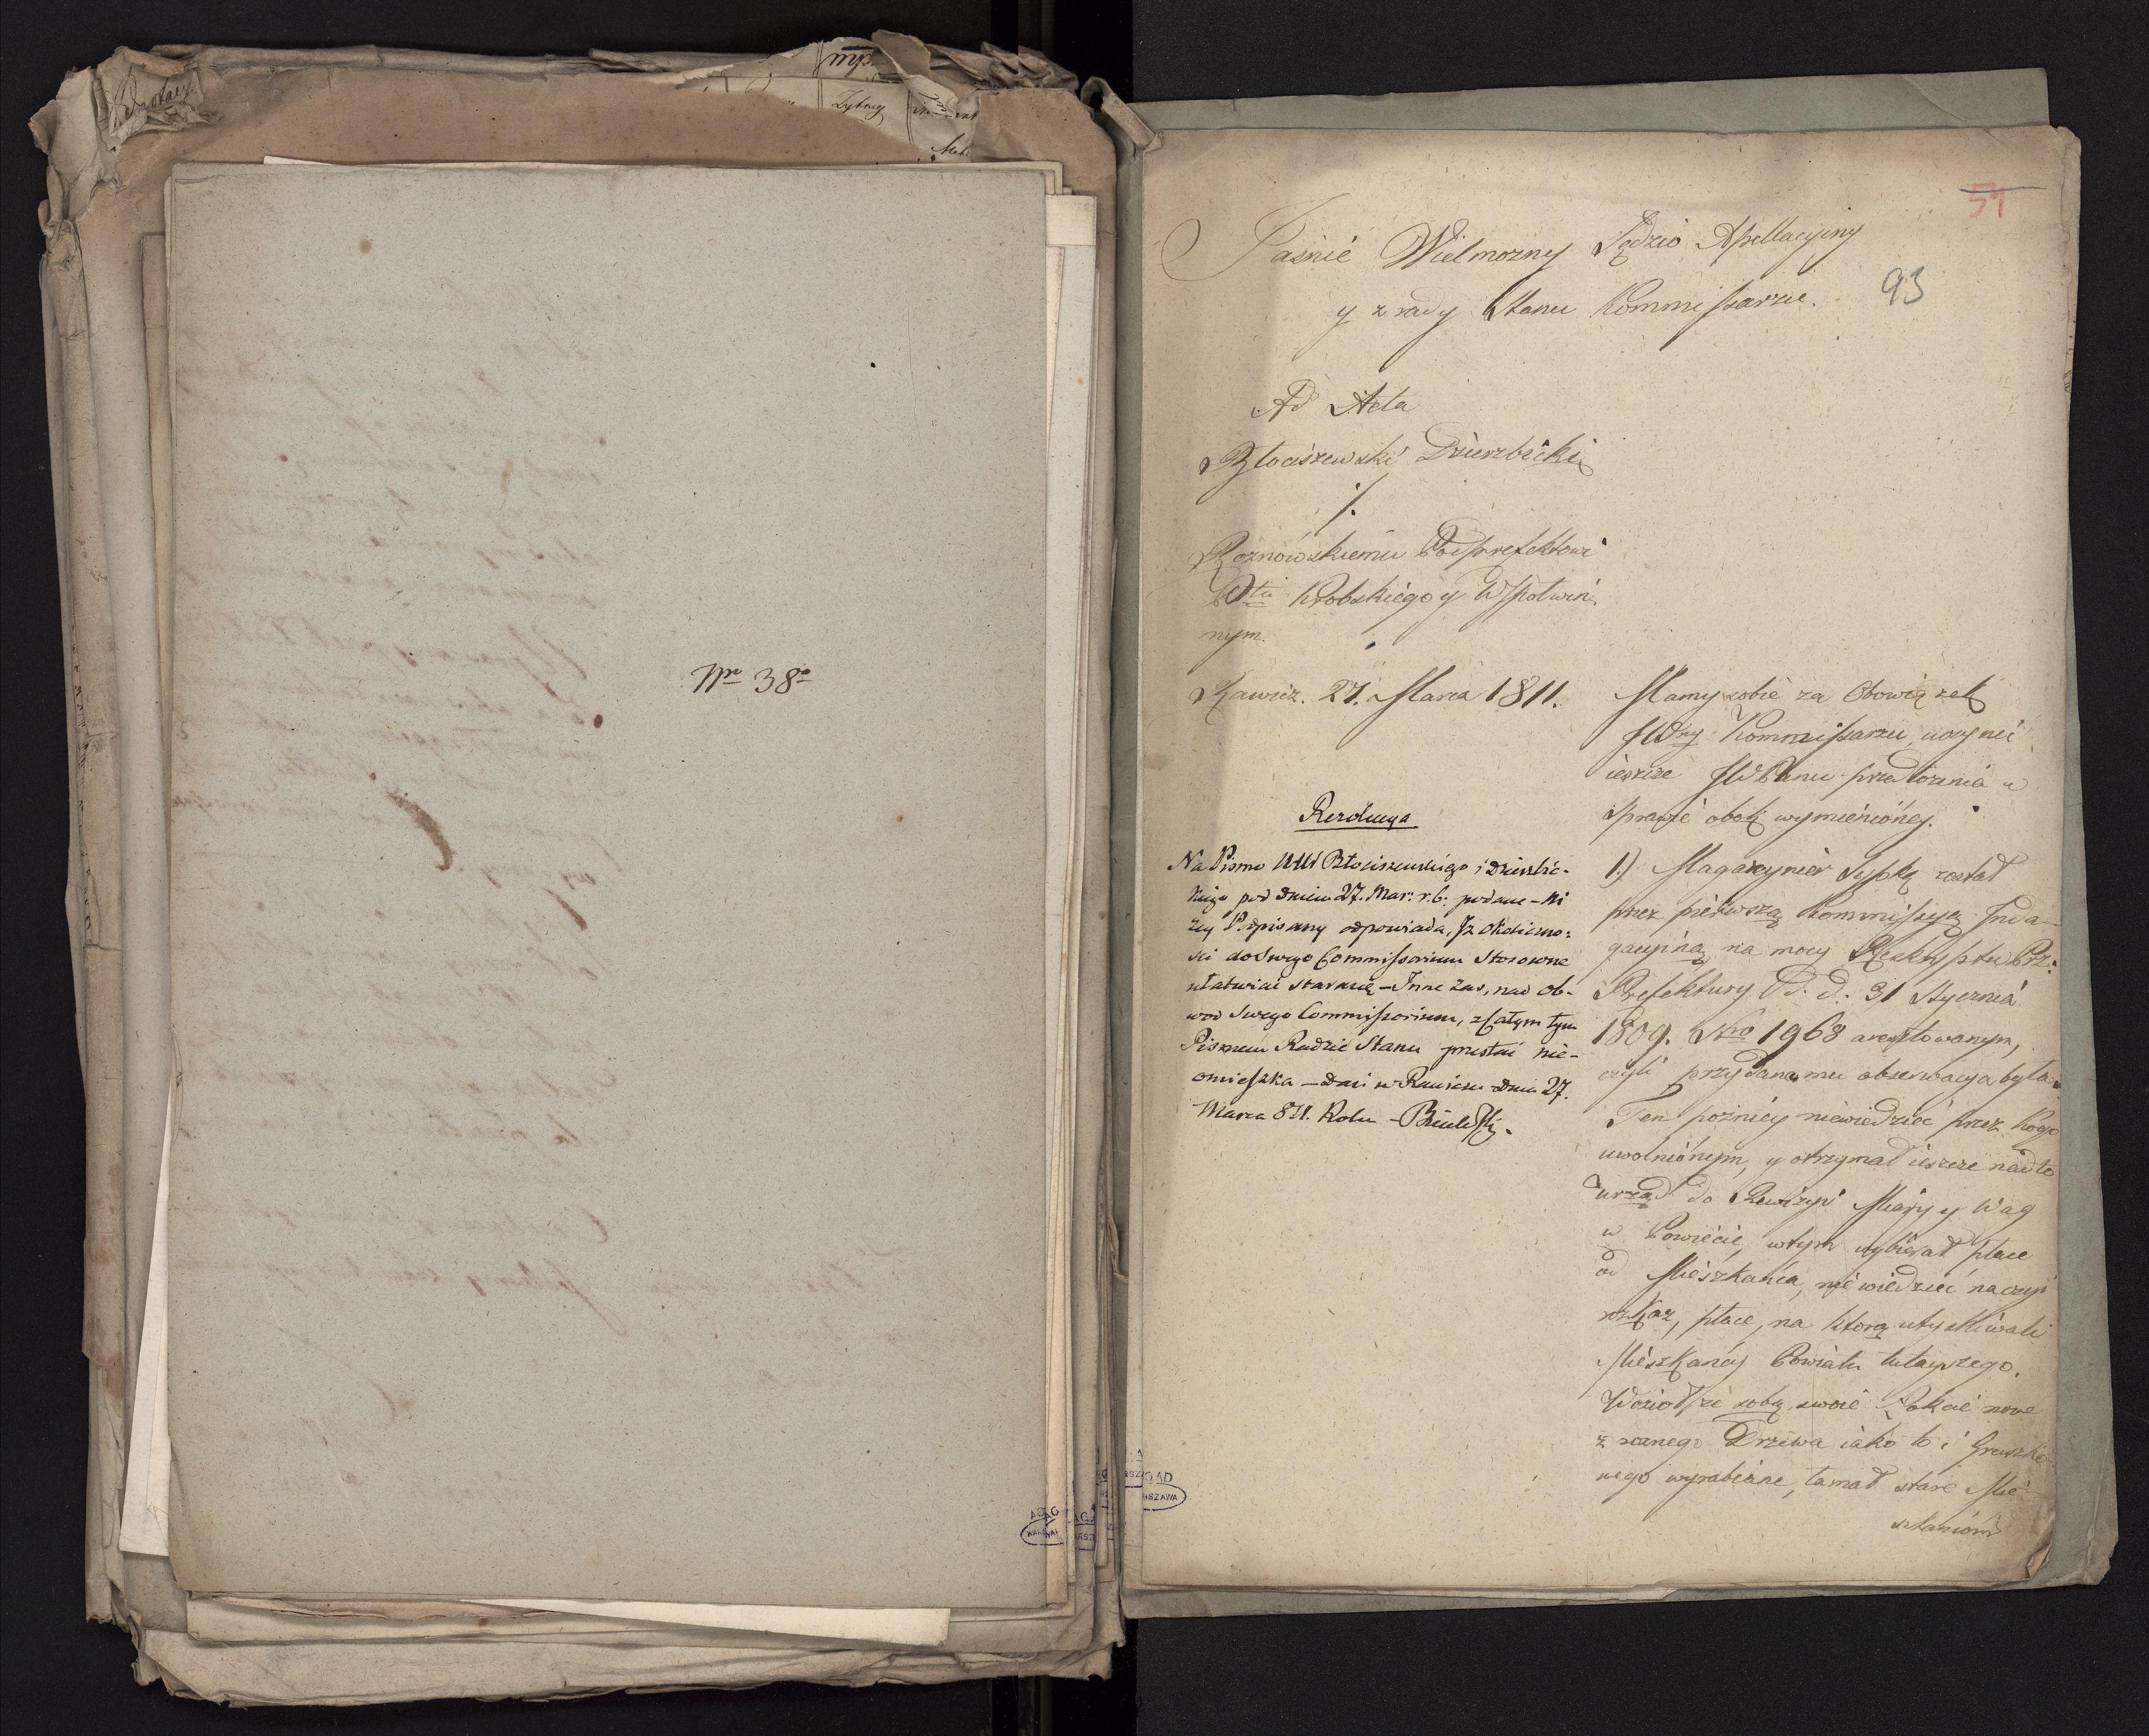 Nro 38o
51
93
Jaśnie Wielmożny Sędzio Apellacyiny
y z rady Stanu Kommissarzu.
Ad Acta
Błociszewski Dzierzbicki
/.
Rożnowskiemu Podprefektowi
Ptu Krobskiego y Wspołwin
nym.
Rawicz. 27. Marca 1811.
Rezolucya
Na Pismo WW Błociszewskiego i Dzierzbic-
kiego pod dniem 27. Mar: r. b. podane - Ni
żey Podpisany odpowiada, Iż okoliczno-
ści do swego Commissorium stosowne
ułatwiać starasię - Inne zaś, nad ob-
wod swego Commissorium, z całym tym
Pismem Radzie Stanu przesłać nie-
omieszka - Dan w Rawiczu dnia 27.
Marca 811. Roku -
Mamy sobie za Obowiązek
JWny Kommissarzu, uczynić
ieszcze JWPanu przełożenia w
sprawie obok wymienióney.
1.) Magazynier Sypką został
przez pierwszą Kommissyą Inda-
gacyiną na mocy Reskryptu Prz:
Prefektury D. d. 31 Stycznia
1809. Nro 1968 aresztowanym,
czyli przydana mu obserwacya była.
Ten pożniey niewiedzieć przez kogo
uwolniónym, y otrzymał ieszcze nadto
urząd do Rewizyi Miary y Wag
w Powiecie, wtym wybierał płace
od Mieszkańca, nie wiedzieć na czyi
rozkaz, płace, na ktorą utyskiwali
Mieszkańcy Powiatu tutayszego.
Woził ze sobą swoie Łokcie nowe
z rznego Drzewa iako to i Gruszko
wego wyrabiane, łamał stare Mie-
szkanióm